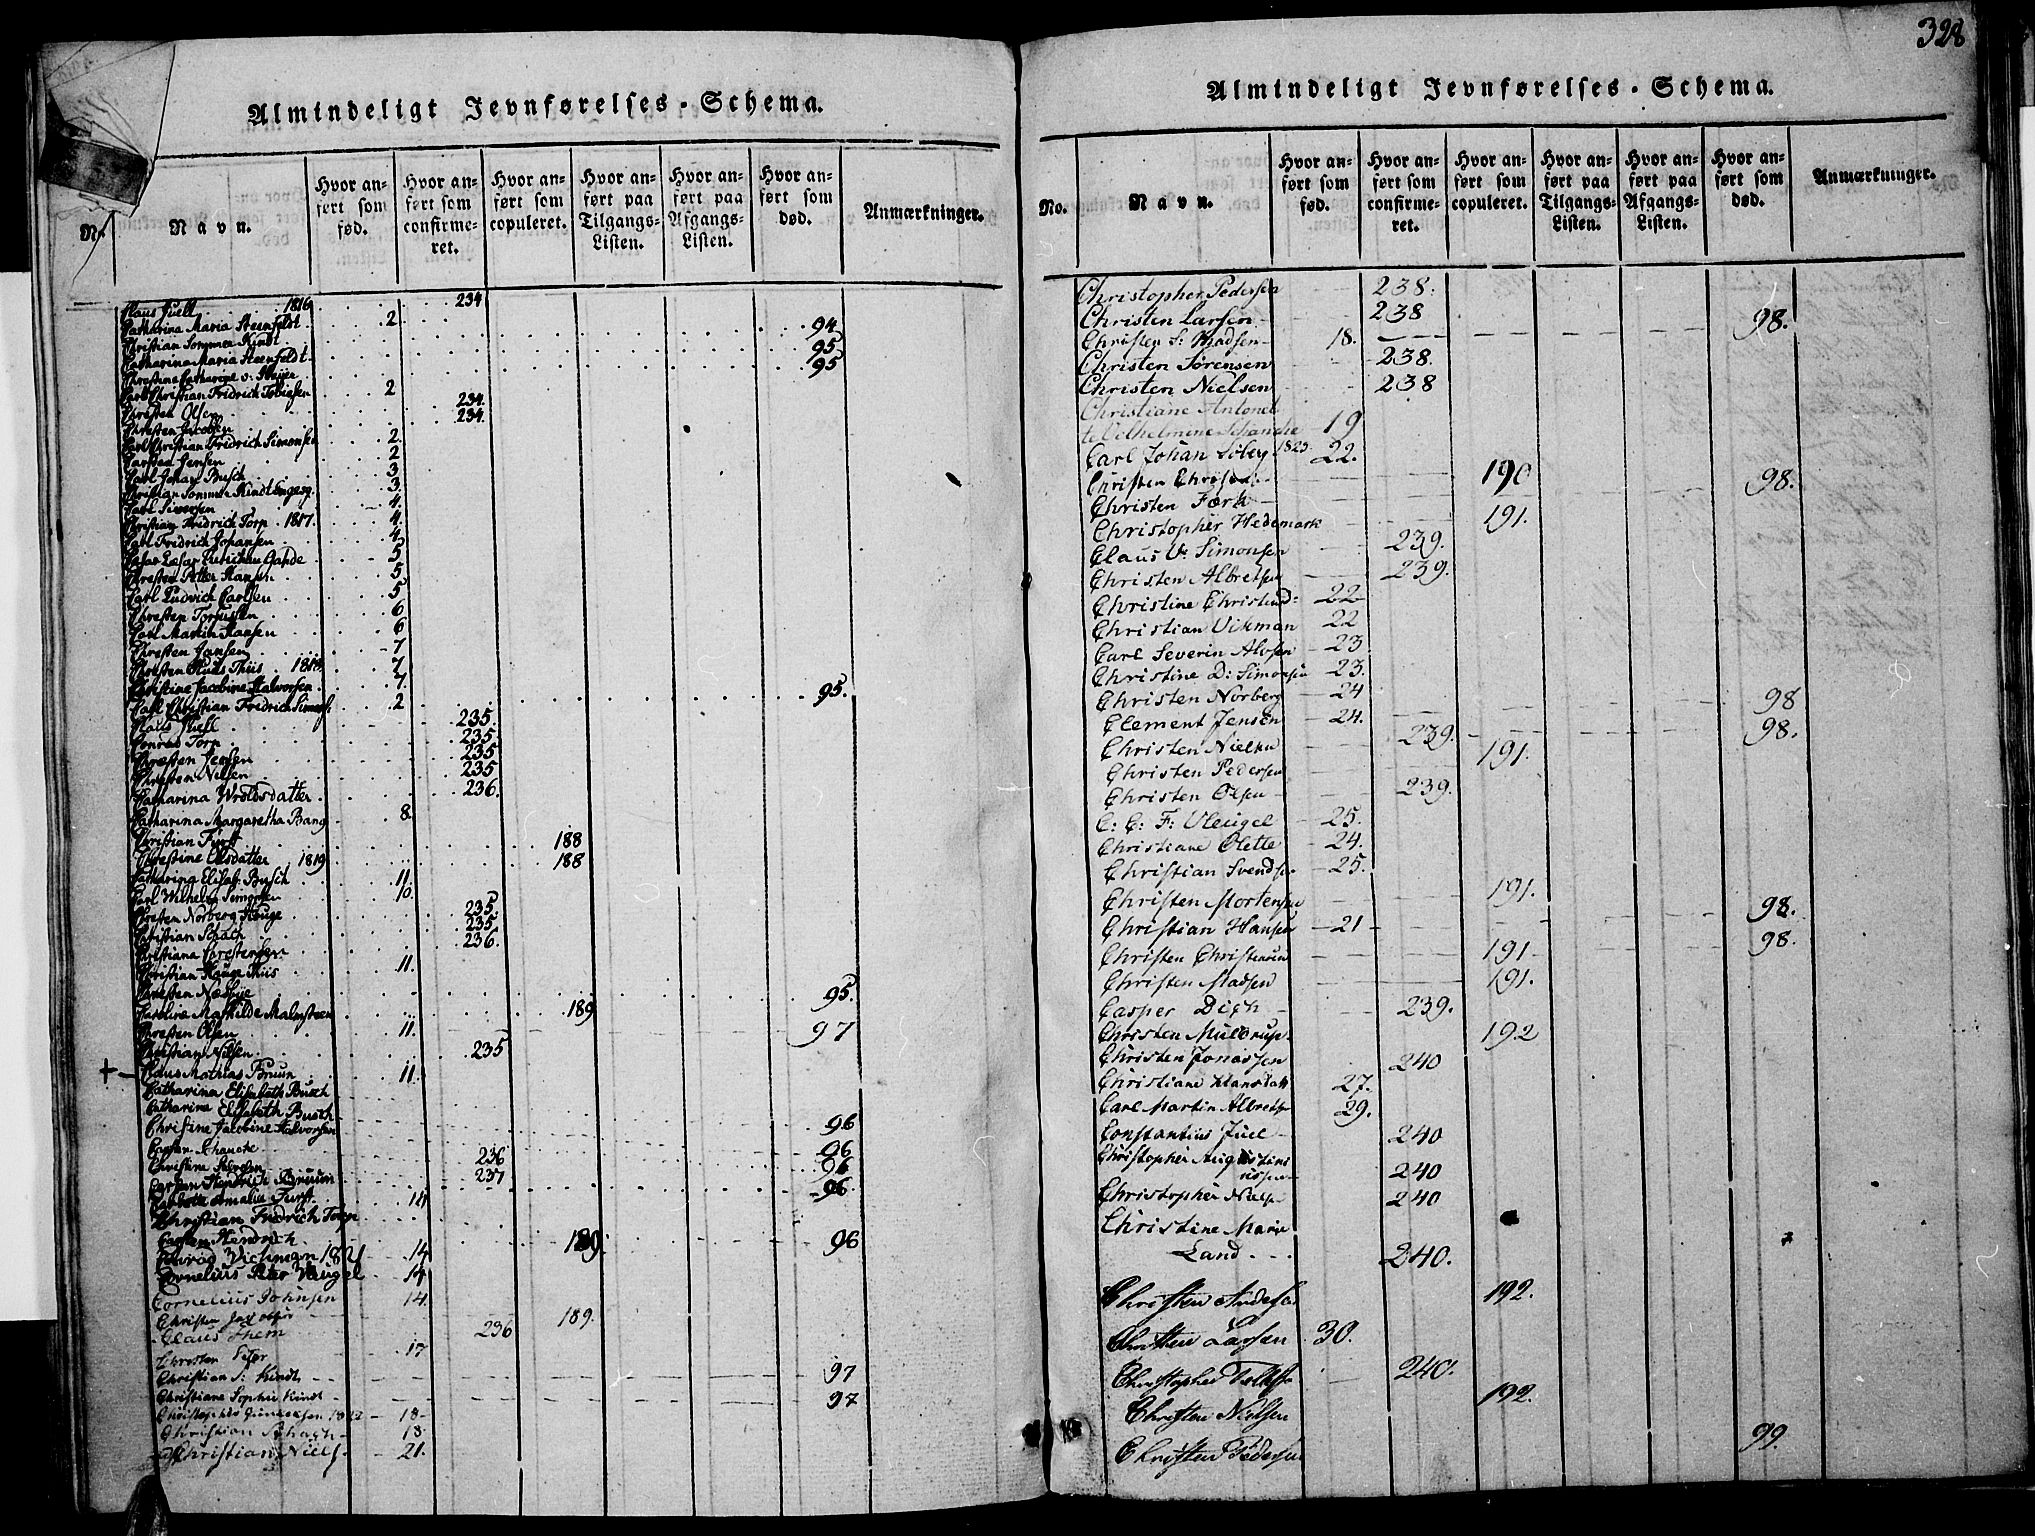 328
Almindeligt Jevnførelses-Schema.
No. Navn. Hvor anført som fød. Hvor anført som confirmeret. Hvor anført som copuleret. Hvor anført paa Tilgangs-Listen. Hvor anført paa Afgangs-Listen. Hvor anført som død. Anmærkninger.
Claus Juell 1816 234
Catharina Maria Steenfeldt 2
Christian Sommer Kindt 94
Catharina Maria Steenfeldt 95
95
Carl Christian Fridrich Tobiesen 2
Christen Olsen 234
Christen Jacobsen 234
Carl Christian Fridrich Simonsen 2
Carsten Jensen 2
Carl Johan Busch 3
Christian Sommer Kindt 3
Carl Siversen 4
Christian Fridrich Torp 1817 4
Carl Fridrich Johansen 4
5
Christen Petter Hansen 5
Carl Ludvich Carlsen 5
Christen 6
Carl Martin Hansen 6
Christen Jensen 7
Christen Claus Thiis 1818 7
Christine Jacobine Halvorsen 7
Carl Christian Fridrich 2 95.
Claus Juell 235
Conrad Torp 235
Christen Jensen 235
Christen Nilsen 235
Catharina Wroldsdatter 236.
Catharina Margaretha Bang 8
Christian Furst 188
Christine Olsdatter 1819 188
Catharina Elisab: Busch 11
Carl Wilhelm Simonsen 10
Christen Norberg Hauge 235
Christian Schach 235
Christiana 236
Christian Hauge Thiis 11.
Christen 95.
Caroline Mathilde Malmsteen 189
Christen Olsen 11. 97
Christian Nilsen 235
+ Claus Mathias Bruun 11
Catharina Elisabeth Busch
Catharina Elisabeth Busch
Christine Jacobine Halvorsen 96
Carsten Schanche 236 96
Christine 237 96
Carsten Hendrich Bruun 96
Amalia Furst 14
Christian Fridrich Torp
Carsten Hendrich 189. 96
Conrad Vichman 1821 14
Cornelius Peter Vleugel 14
Cornelius Johnsen 14.
Christen 189.
Claus Them 236
Christen Peter 17
Christian S: Kindt 97
Christiane Sophie Kindt 97
Christopher Gundersen 1822 18
Christian Schach 18
Christian Niels 21.
Almindeligt Jevnførelses-Schema.
No. Navn. Hvor anført som fød. Hvor anført som confirmeret. Hvor anført som copuleret. Hvor anført paa Tilgangs-Listen. Hvor anført paa Afgangs-Listen. Hvor anført som død. Anmærkninger.
Christopher Pedersen 238.
Christen Larsen 238
Christen S: Madsen 18. 98.
Christen Sørensen 238.
Christen Nielsen 238
Christiane Antonet
te Vilhelmine Schanche 19
Carl Johan 1823 22.
Christen 190 98.
Christen Færk
Christopher Hedemark 191.
Claus V: Simonsen 239.
Christen Albretsen 239.
Christine Christens: 22
Christian Vikman 22
Carl Severin 23
Christine D: Simonsen 23.
Christen Norberg 24 98
Clement Jensen 24. 98.
Christen Nielsen 239. 191.
Christen Pedersen
Christen Olsen 239.
C: C: F: Vleugel 25.
Christiane Olette 24.
Christian Svends. 25.
Christen Mortensen 191. 98.
Christian Hansen 21 98.
Christen Christiansen 191
Christen Madsen 191.
Casper Dich 239.
Christen 192
Christen Jonassen 240
Christiane Hansdatt 27.
Carl Martin Albretse 29.
Constantius Juel 240
Christopher
240
Christopher Niels 240
Christine Marie
Land 240.
Christen Anders. 192.
Christen Larsen 30.
Christopher 240.
Christen Nielsen 192.
Christen Pedersen 99.